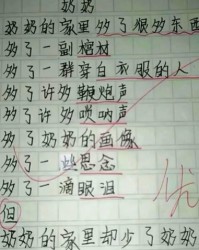 奶奶
奶奶的家里多了很多东西
多了一副棺材
多了一群穿白衣服的人
多了许多鞭炮声
多了许多唢呐声
多了奶奶的画像
多了一些思念
多了一滴眼泪
但
奶奶的家里却少了奶奶
优